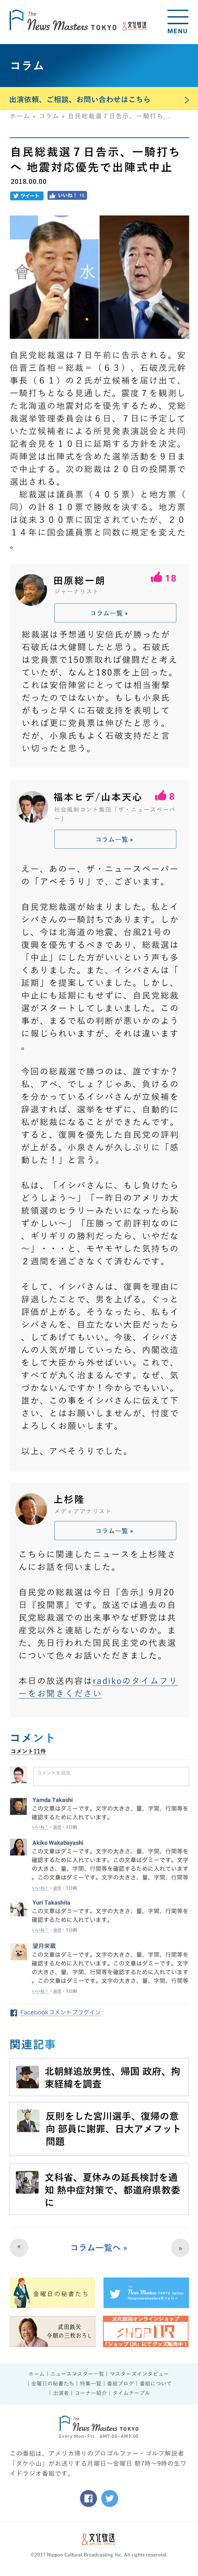 The
News Masters TOKYO 文化放送
MENU
コラム
出演依頼、ご相談、お問い合わせはこちら
ホーム » コラム » 自民総裁選７日告示、一騎打ち...
自民総裁選７日告示、一騎打ち
へ 地震対応優先で出陣式中止
2018.00.00
ツイート いいね！ 15
自民党総裁選は７日午前に告示される。安
倍晋三首相＝総裁＝（６３）、石破茂元幹
事長（６１）の２氏が立候補を届け出て、
一騎打ちとなる見通しだ。震度７を観測し
た北海道の地震対応を優先するため、党総
裁選挙管理委員会は６日、７日に予定して
いた立候補者による所見発表演説会と共同
記者会見を１０日に延期する方針を決定。
両陣営は出陣式を含めた選挙活動を９日ま
で中止する。次の総裁は２０日の投開票で
選出される。
　総裁選は議員票（４０５票）と地方票（
同）の計８１０票で勝敗を決する。地方票
は従来３００票に固定されていたが、２０
１４年に国会議員票と同数に規定を変えた
。
田原総一朗
ジャーナリスト
18
コラム一覧 »
総裁選は予想通り安倍氏が勝ったが
石破氏は大健闘したと思う。石破氏
は党員票で150票取れば健闘だと考え
ていたが、なんと180票を上回った。
これは安倍陣営にとっては相当衝撃
だったのではないか。もしも小泉氏
がもっと早くに石破支持を表明して
いれば更に党員票は伸びたと思う。
だが、小泉氏もよく石破支持だと言
い切ったと思う。
福本ヒデ/山本天心
8
社会風刺コント集団「ザ・ニュースペーパ
ー」
コラム一覧 »
えー、あのー、ザ・ニュースペーパー
の「アベぞうり」で、ございます。
自民党総裁選が始まりました。私とイ
シバさんの一騎討ちであります。しか
し、今は北海道の地震、台風21号の
復興を優先するべきであり、総裁選は
「中止」にした方がいいという声も多
くありました。また、イシバさんは「
延期」を提案していました。しかし、
中止にも延期にもせずに、自民党総裁
選がスタートしてしまいました。この
事が、まるで私の判断が悪いかのよう
に報じられいますが、それは違います
。
今回の総裁選で勝つのは、誰ですか？
私、アベ、でしょ？じゃあ、負けるの
を分かっているイシバさんが立候補を
辞退すれば、選挙をせずに、自動的に
私が総裁になることができたんです。
すると、復興を優先した自民党の評判
が上がる。小泉さんが久しぶりに「感
動した！」と言う。
私は、「イシバさんに、もし負けたら
どうしよう〜」「一昨日のアメリカ大
統領選のヒラリーみたいになったら恥
ずかしい〜」「圧勝って前評判なのに
、ギリギリの勝利だったら、いやだな
〜」・・・と、モヤモヤした気持ちの
２週間を過ごさなくて済むんです。
そして、イシバさんは、復興を理由に
辞退したことで、男を上げる。ぐっと
評価が上がる。そうなったら、私もイ
シバさんを、目立たない大臣だったら
、してあげてもいい。今後、イシバさ
んの人気が増していったら、内閣改造
をして大臣から外せばいい。これで、
すべてが丸く治まるんです。なぜ、気
づかないんですか！今からでもいい。
誰か、この事をイシバさんに伝えて下
さい、とはお願いしませんが、忖度を
よろしくお願いします。
以上、アベそうりでした。
上杉隆
メディアアナリスト
コラム一覧 »
こちらに関連したニュースを上杉隆さ
んにお話を伺いました。
自民党の総裁選は今日『告示』9月20
日『投開票』です。放送では過去の自
民党総裁選での出来事やなぜ野党は共
産党以外と連結したがらないのか。ま
た、先日行われた国民民主党の代表選
について色々お話いただきました。
本日の放送内容はradikoのタイムフリ
ーをお聞きください
コメント
コメント11件
コメントを追加
Yamda Takashi
この文章はダミーです。文字の大きさ、量、字間、行間等を
確認するために入れています。
いいね！・返信・1日前
Akiko Wakabayashi
この文章はダミーです。文字の大きさ、量、字間、行間等を
確認するために入れています。この文章はダミーです。文字
の大きさ、量、字間、行間等を確認するために入れています
。この文章はダミーです。文字の大きさ、量、字間、行間等
いいね！・返信・1日前
Yuri Takashita
この文章はダミーです。文字の大きさ、量、字間、行間等を
確認するために入れています。
いいね！・返信・1日前
望月栄蔵
この文章はダミーです。文字の大きさ、量、字間、行間等を
確認するために入れています。この文章はダミーです。文字
の大きさ、量、字間、行間等を確認するために入れています
。この文章はダミーです。文字の大きさ、量、字間、行間等
いいね！・返信・1日前
Facebookコメントプラグイン
関連記事
北朝鮮追放男性、帰国 政府、拘
束経緯を調査
反則をした宮川選手、復帰の意
向 部員に謝罪、日大アメフット
問題
文科省、夏休みの延長検討を通
知 熱中症対策で、都道府県教委
に
« コラム一覧へ » »
金曜日の秘書たち
The News Masters TOKYO
武田鉄矢
今朝の三枚おろし
文化放送オンラインショップ
SHOP QR
「ショップ QR」にてグッズ販売中！
ホーム | ニュースマスター一覧 | マスターズインタビュー
| 金曜日の秘書たち | 特集一覧 | 番組ブログ | 番組について
| 出演者 | コーナー紹介 | タイムテーブル
The
News Masters TOKYO
Every Mon-Fri AM7:00-AM9:00
この番組は、アメリカ帰りのプロゴルファー・ゴルフ解説者
「タケ小山」がお送りする月曜日〜金曜日 朝7時〜9時の生ワ
イドラジオ番組です。
文化放送
©2017 Nippon Cultural Broadcasting Inc. All rights reserved.